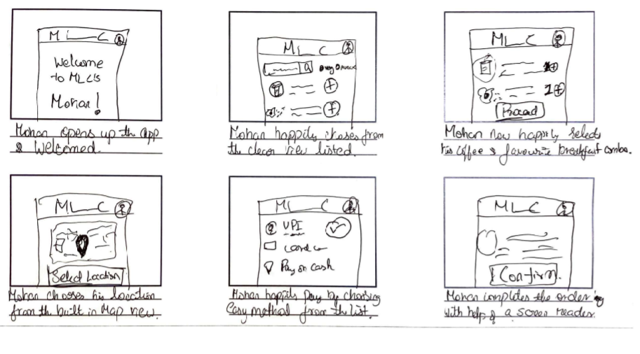 MLC
Welcome
to MLC's
Mohan!
Mohan opens up the app
& Welcomed.
MLC
Mohan happily choses from
the clean view listed.
MLC
Proceed
Mohan now happily selects
his coffee & favourite breakfast combo.
MLC
Select Location
Mohan chooses his location
from the built in Map view.
MLC
UPI
Card
Pay on cash
Mohan happily pay by choosing
easy method from the list.
MLC
Confirm.
Mohan completes the order
with help of a screen reader.